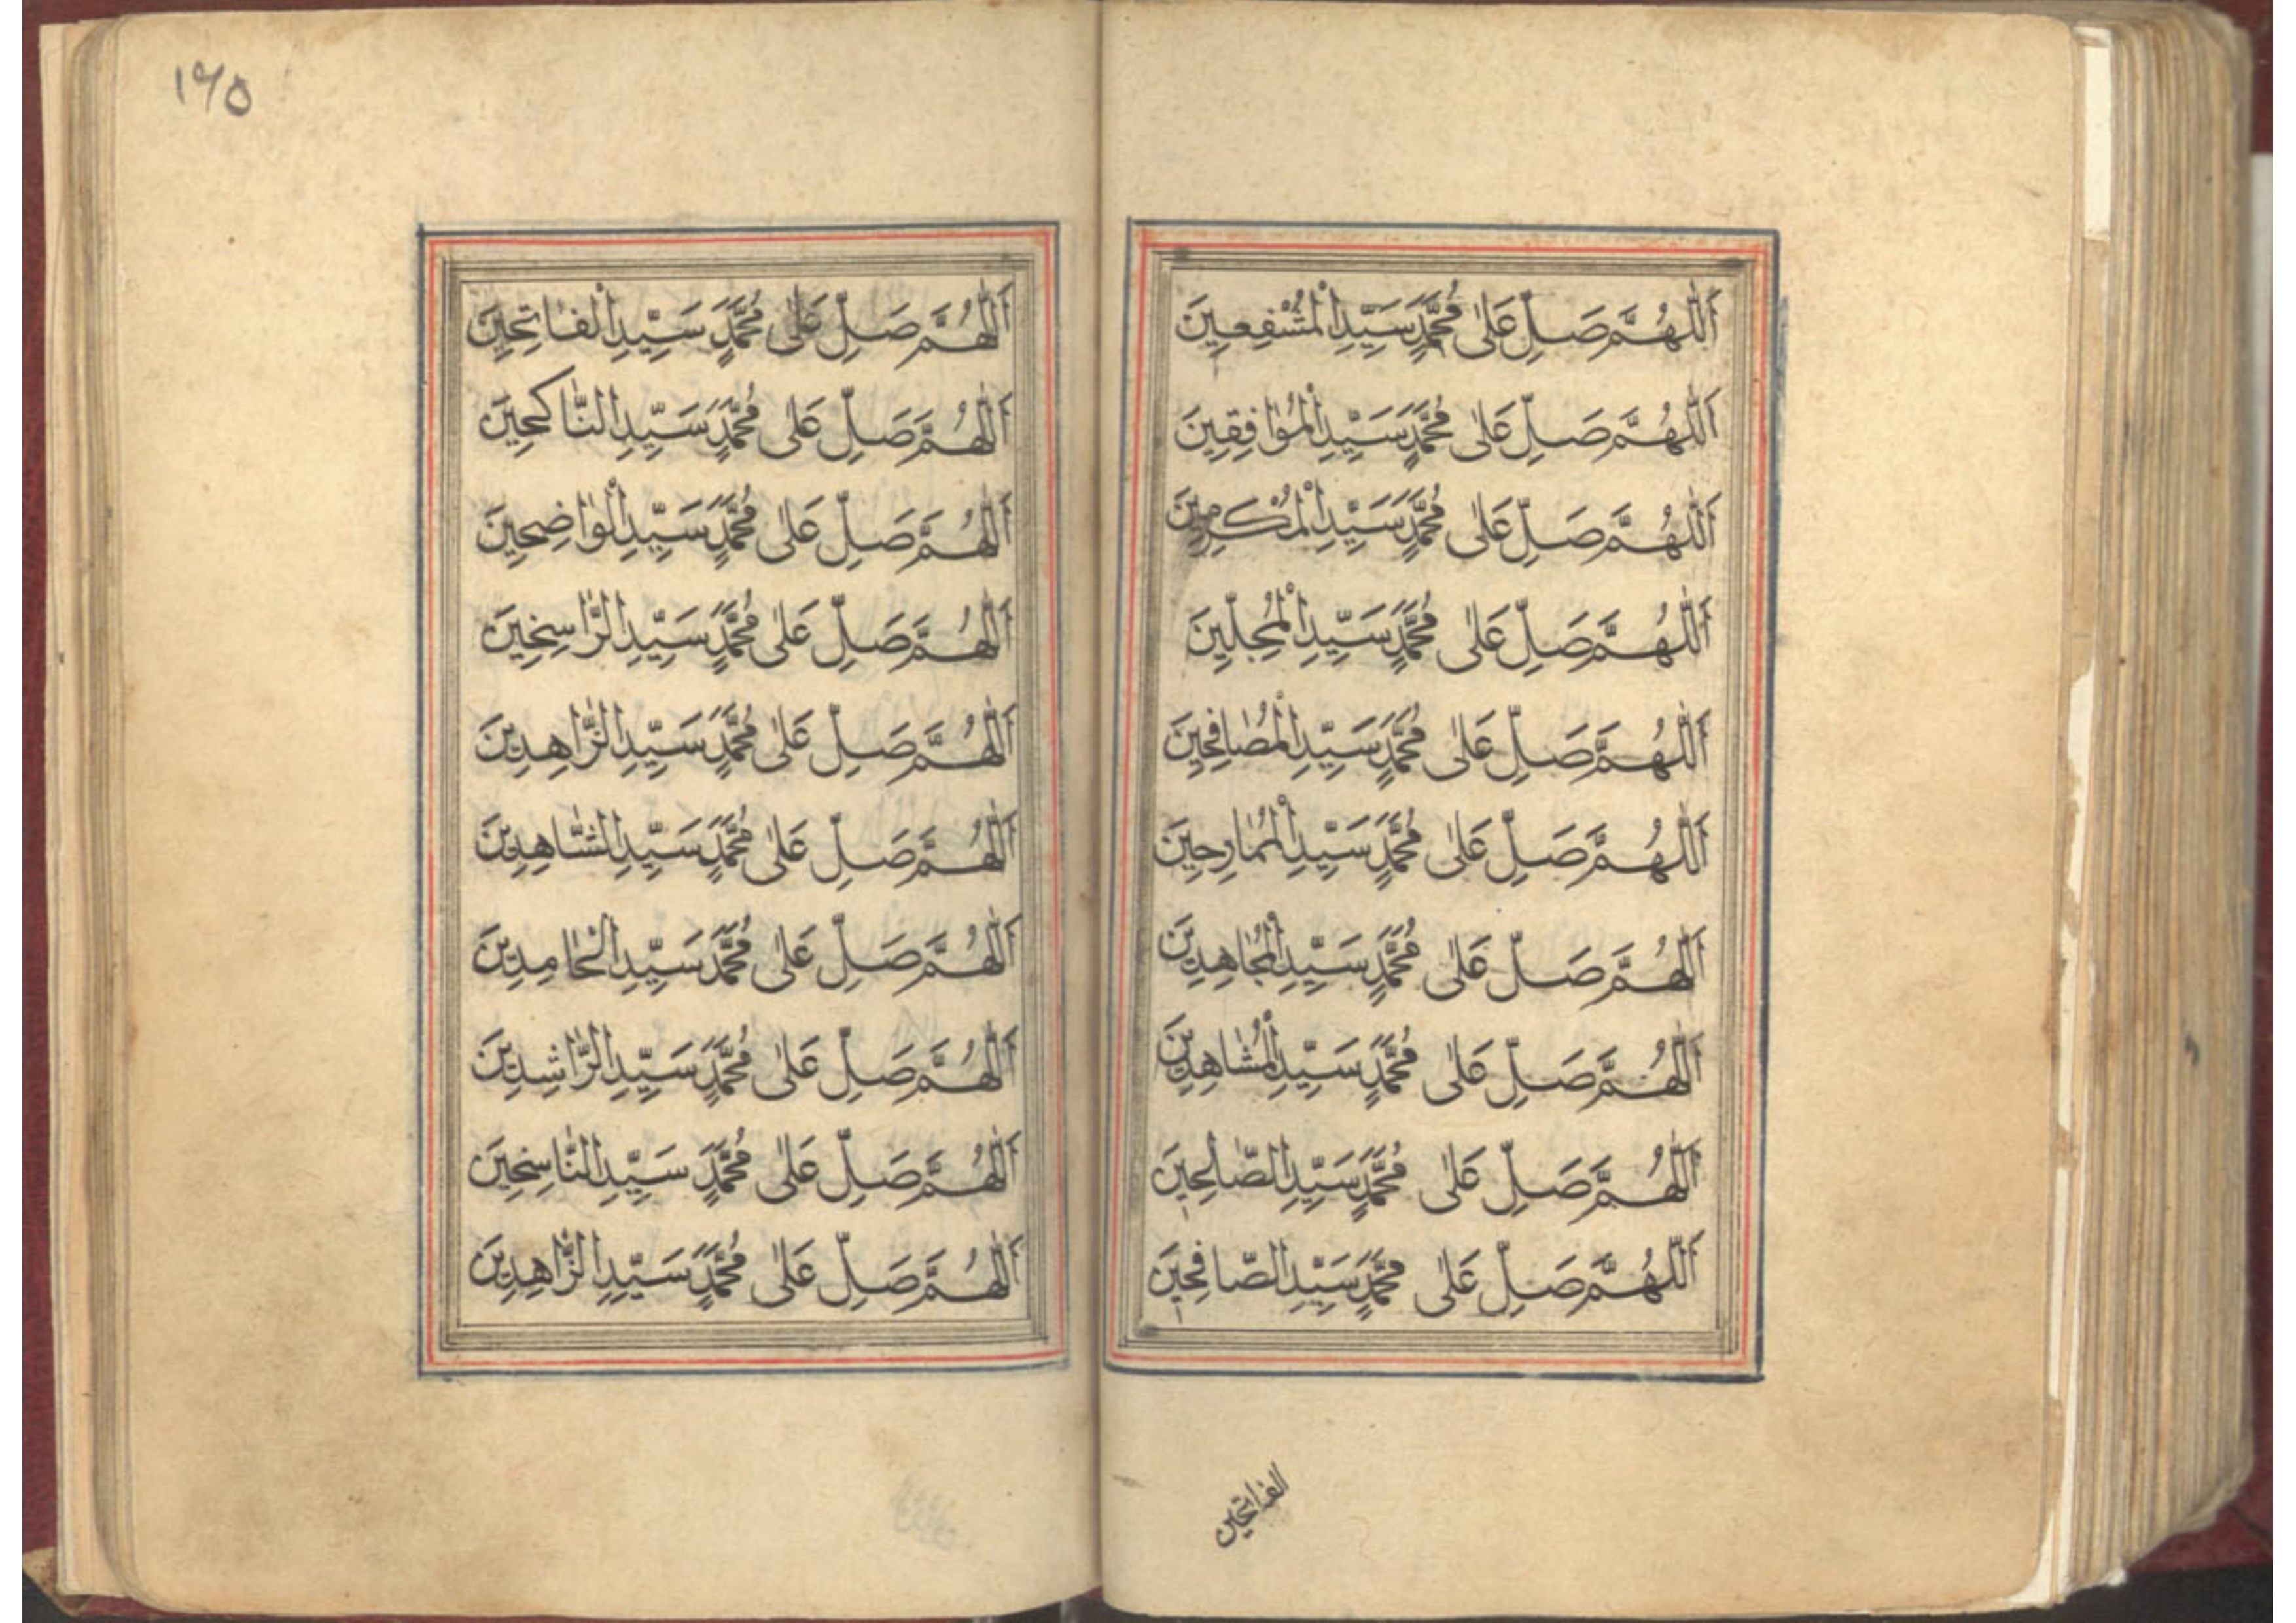 اَللّٰهُمَّ صَلِّ عَلٰى مُحَمَّدٍ سَيِّدِ الْمُشْفِعِينَ
اَللّٰهُمَّ صَلِّ عَلٰى مُحَمَّدٍ سَيِّدِ الْمُوَافِقِينَ
اَللّٰهُمَّ صَلِّ عَلٰى مُحَمَّدٍ سَيِّدِ الْمُكْرِمِينَ
اَللّٰهُمَّ صَلِّ عَلٰى مُحَمَّدٍ سَيِّدِ الْمُجِلِّينَ
اَللّٰهُمَّ صَلِّ عَلٰى مُحَمَّدٍ سَيِّدِ الْمُصَافِحِينَ
اَللّٰهُمَّ صَلِّ عَلٰى مُحَمَّدٍ سَيِّدِ الْمُمَارِحِينَ
اَللّٰهُمَّ صَلِّ عَلٰى مُحَمَّدٍ سَيِّدِ الْمُجَاهِدِينَ
اَللّٰهُمَّ صَلِّ عَلٰى مُحَمَّدٍ سَيِّدِ الْمُشَاهِدِينَ
اَللّٰهُمَّ صَلِّ عَلٰى مُحَمَّدٍ سَيِّدِ الصَّالِحِينَ
اَللّٰهُمَّ صَلِّ عَلٰى مُحَمَّدٍ سَيِّدِ الصَّافِحِينَ
الفاتحين
١٦٥
اَللّٰهُمَّ صَلِّ عَلٰى مُحَمَّدٍ سَيِّدِ الْفَاتِحِينَ
اَللّٰهُمَّ صَلِّ عَلٰى مُحَمَّدٍ سَيِّدِ النَّاكِحِينَ
اَللّٰهُمَّ صَلِّ عَلٰى مُحَمَّدٍ سَيِّدِ الْوَاضِحِينَ
اَللّٰهُمَّ صَلِّ عَلٰى مُحَمَّدٍ سَيِّدِ الرَّاسِخِينَ
اَللّٰهُمَّ صَلِّ عَلٰى مُحَمَّدٍ سَيِّدِ الزَّاهِدِينَ
اَللّٰهُمَّ صَلِّ عَلٰى مُحَمَّدٍ سَيِّدِ الشَّاهِدِينَ
اَللّٰهُمَّ صَلِّ عَلٰى مُحَمَّدٍ سَيِّدِ الْحَامِدِينَ
اَللّٰهُمَّ صَلِّ عَلٰى مُحَمَّدٍ سَيِّدِ الرَّاشِدِينَ
اَللّٰهُمَّ صَلِّ عَلٰى مُحَمَّدٍ سَيِّدِ النَّاسِخِينَ
اَللّٰهُمَّ صَلِّ عَلٰى مُحَمَّدٍ سَيِّدِ الزَّاهِدِينَ